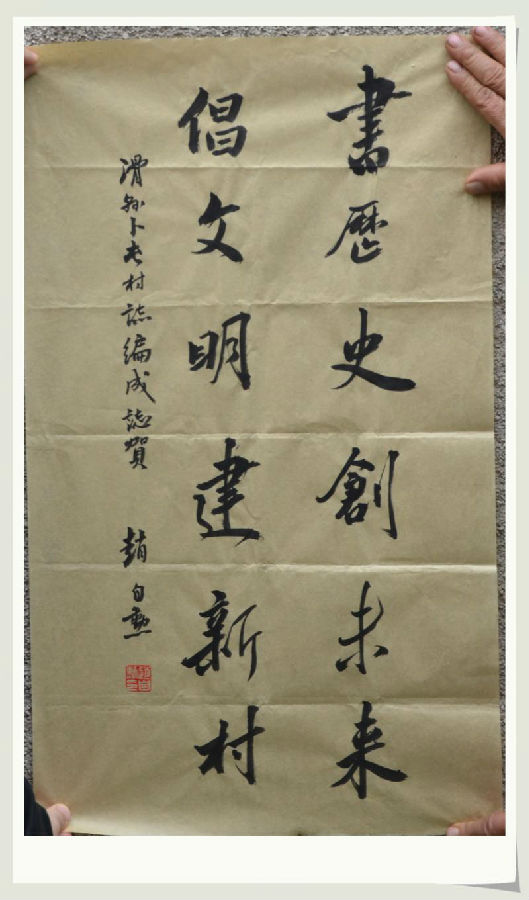 書歷史創未来
倡文明建新村
滑縣卜老村誌編成誌賀
趙自勳